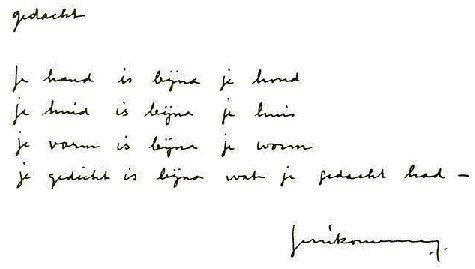 gedacht
je hand is bijna je hond
je huid is bijna je huis
je vorm is bijna je worm
je gedicht is bijna wat je gedacht had –
gerrit komrij